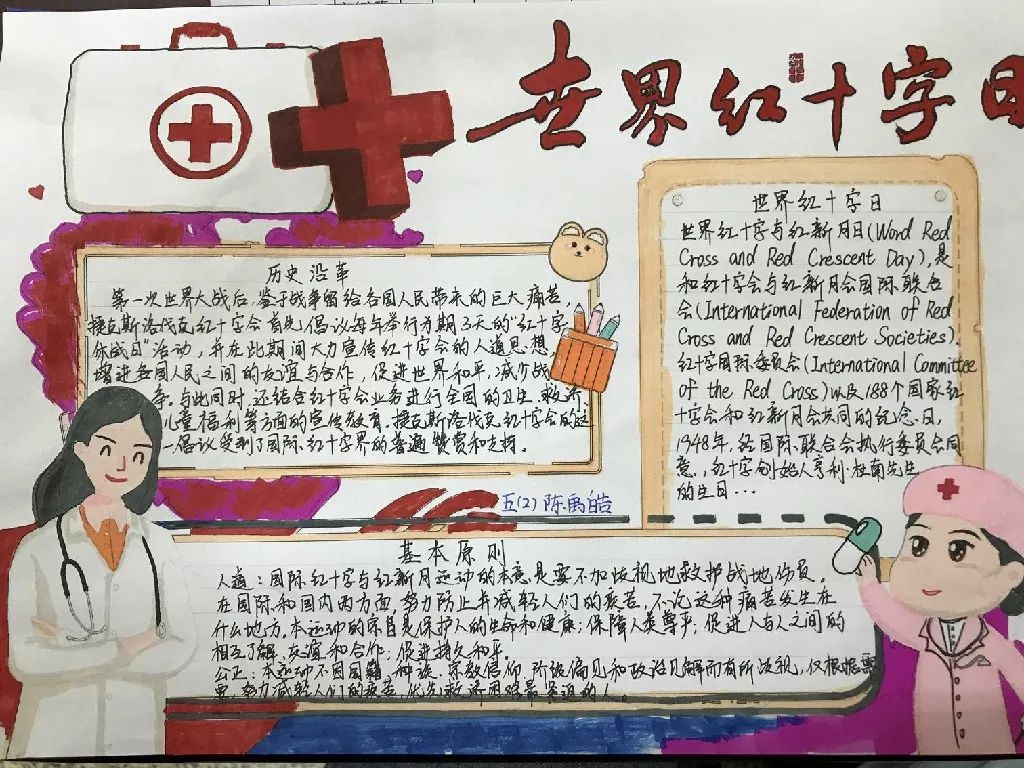 世界红十字日
世界红十字日
世界红十字与红新月日(Word Red
Cross and Red Crescent Day),是
和红十字会与红新月会国际联合
会(International Federation of Red
Cross and Red Crescent Societies).
红十字国际委员会(International Committee
of the Red Cross)以及188个国家红
十字会和红新月会共同的纪念日,
1948年,经国际联合会执行委员会同
意,红十字创始人亨利·杜南先生
的生日...
历史沿革
第一次世界大战后,鉴于战争留给各国人民带来的巨大痛苦,
捷克斯洛伐克红十字会首先倡议每年举行为期3天的"红十字
休战日"活动,并在此期间大力宣传红十字会的人道思想
增进各国人民之间的友谊与合作,促进世界和平,减少战
争.与此同时,还结合红十字会业务进行全国的卫生、救济
儿童福利等方面的宣传教育.捷克斯洛伐克红十字会的这
一倡议受到了国际红十字界的普遍赞赏和支持。
五(2)陈禹皓
基本原则
人道:国际红十字与红新月运动的本意是要不加歧视地救护战地伤员,
在国际和国内两方面,努力防止并减轻人们的疾苦,不论这种痛苦发生在
什么地方.本运动的宗旨是保护人的生命和健康;保障人类尊严;促进人与人之间的
相互了解、友谊和合作;促进持久和平。
公正:本运动不因国籍、种族、宗教信仰、阶级偏见和政治见解而有所歧视,仅根据需
要,努力减轻人们的疾苦,优先救济困难最紧迫的人。